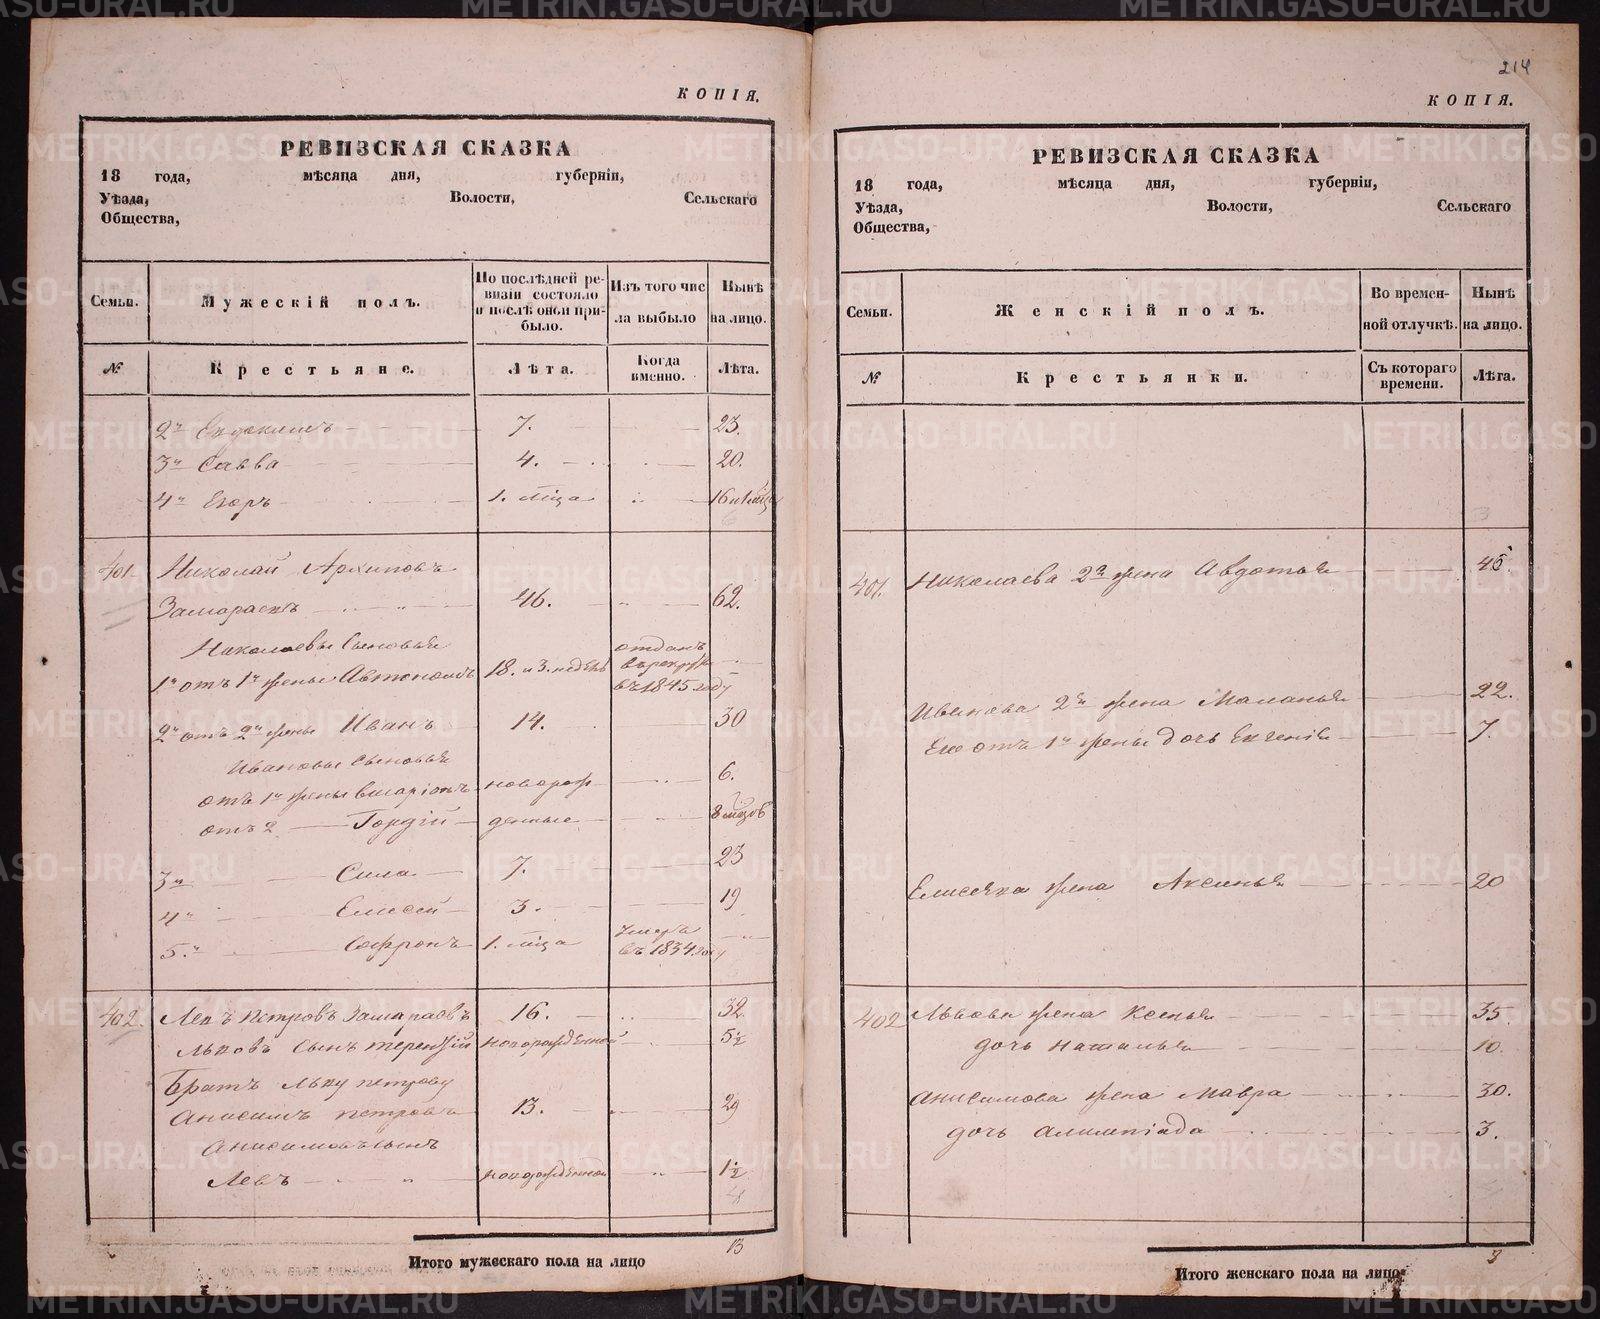 КОПІЯ.
РЕВИЗСКАЯ СКАЗКА
18 года, мѣсяца дня, губерніи,
Уѣзда, Волости, Сельскаго
Общества,
Семьи. Мужескій полъ. По послѣдней ревизіи состояло и послѣ онои прибыло. Изъ того числа выбыло Нынѣ на лицо.
№ Крестьяне. Лѣта. Когда именно. Лѣта.
2й Евдокимъ 7. 23.
3й Савва 4. 20.
4й Егоръ 1. мѣца 16 и 1 мѣца
401. Николай Архиповъ
Замараевъ 46. 62.
Николаевы Сыновья
1й отъ 1й жены Автономъ 18. и 3. недѣль отданъ въ рекруты въ 1845 году
2й отъ 2й жены Иванъ 14. 30
Ивановы Сыновья
отъ 1й жены Иларіонъ новорож 6.
отъ 2 Гордій денные 8 мѣзов
3й Сила 7. 23
4й Елисей 3. 19
5й Софронъ 1. мѣца умеръ въ 1834 году
402. Левъ Петровъ Замараевъ 16. 32.
Львовъ сынъ Терентій новорожденной 5½
Братъ Льву Петрову
Анисимъ Петровъ 13. 29
Анисимовъ сынъ
Левъ новорожденной 1½
4
13
Итого мужескаго пола на лицо
214
КОПІЯ.
РЕВИЗСКАЯ СКАЗКА
18 года, мѣсяца дня, губерніи,
Уѣзда, Волости, Сельскаго
Общества,
Семьи. Женскій полъ. Во временной отлучкѣ. Нынѣ на лицо.
№ Крестьянки. Съ котораго времени. Лѣта.
3
401. Николаева 2я жена Авдотья 45.
Иванова 2я жена Маланья 22.
Его отъ 1й жены дочь Евгенія 7.
Елисеява жена Аксинья 20
402 Львова жена Ксенья 35.
дочь Наталья 10.
Анисимова жена Мавра 30.
дочь Алимпіада 3.
Итого женскаго пола на лицо
METRIKI.GASO-URAL.RU